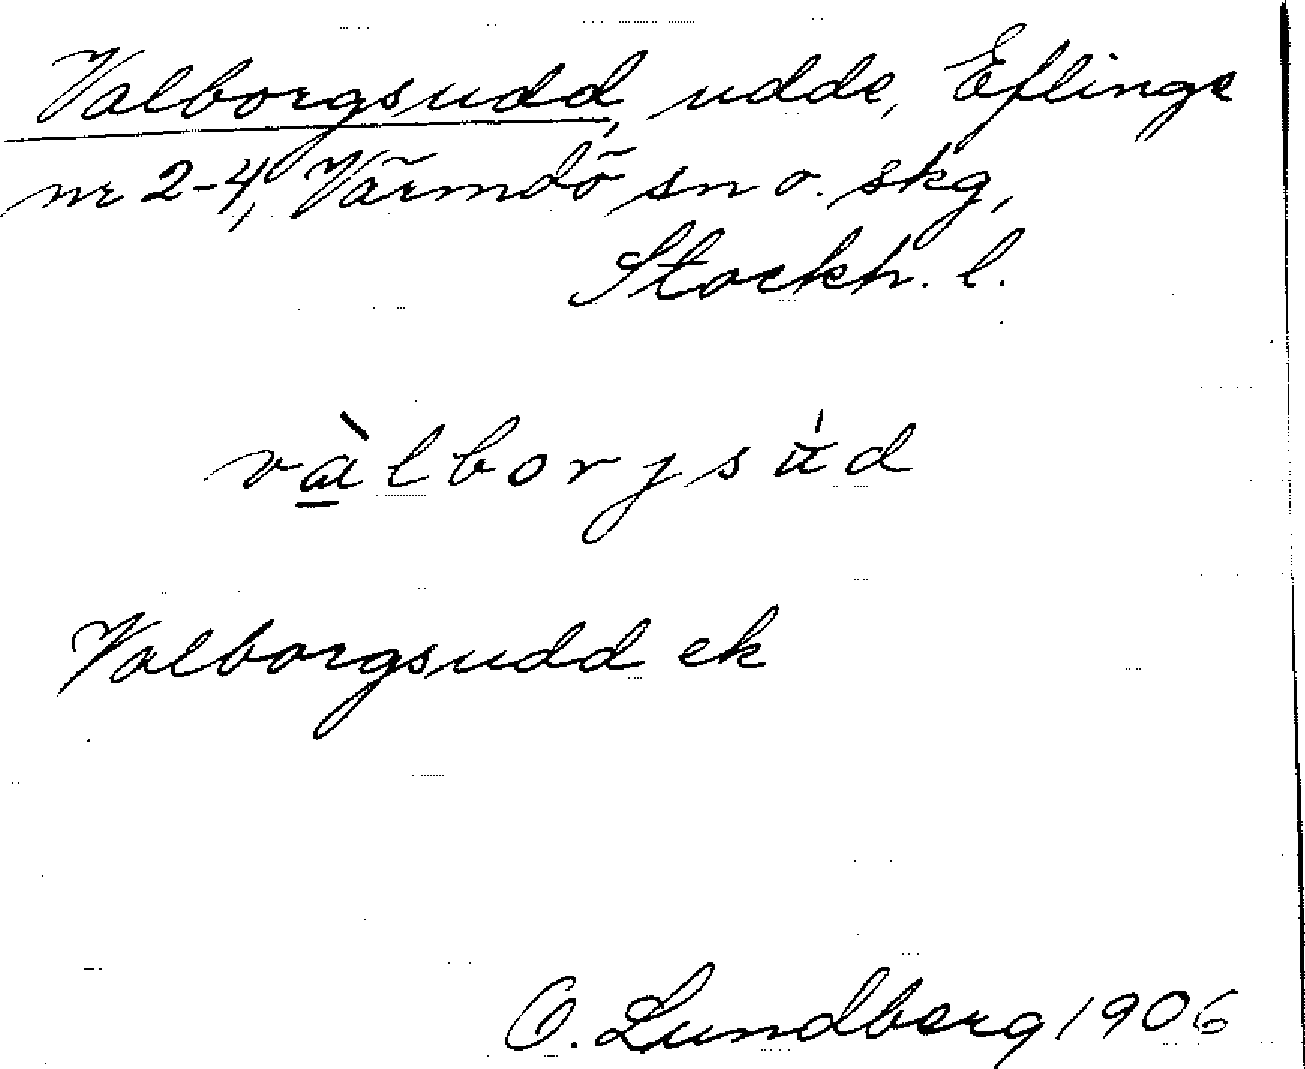 Valborgsudd, udde, Eflinge
nr 2-4, Värmdö sn o. skg,
Stockh. l.
vàlborjsu̍d
Valborgsudd ek
O. Lundberg 1906